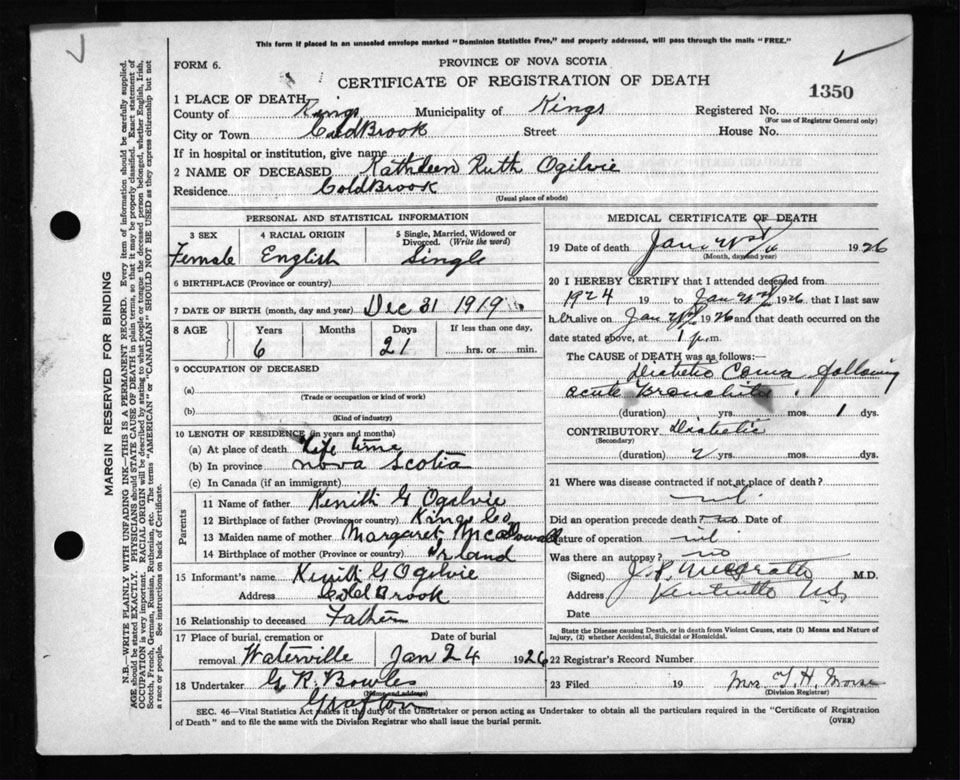 This form if placed in an unsealed envelope marked "Dominion Statistics Free," and properly addressed, will pass through the mails "FREE."
FORM 6.
PROVINCE OF NOVA SCOTIA
CERTIFICATE OF REGISTRATION OF DEATH
1350
1 PLACE OF DEATH
County of Kings Municipality of Kings Registered No.
(For use of Registrar General only)
City or Town ColdBrook Street House No.
If in hospital or institution, give name
2 NAME OF DECEASED Kathleen Ruth Ogilvie
Residence ColdBrook
(Usual place of abode)
PERSONAL AND STATISTICAL INFORMATION
3 SEX 4 RACIAL ORIGIN 5 Single, Married, Widowed or Divorced. (Write the word)
Female English Single
6 BIRTHPLACE (Province or country)
7 DATE OF BIRTH (month, day and year) Dec 31 1919
8 AGE Years Months Days If less than one day,
6 21 hrs. or min.
9 OCCUPATION OF DECEASED
(a)
(Trade or occupation or kind of work)
(b)
(Kind of industry)
10 LENGTH OF RESIDENCE (in years and months)
(a) At place of death Life time
(b) In province Nova Scotia
(c) In Canada (if an immigrant)
Parents
11 Name of father Kenith G Ogilvie
12 Birthplace of father (Province or country) Kings Co
13 Maiden name of mother Margaret
14 Birthplace of mother (Province or country) Irland
15 Informant's name Kenith G Ogilvie
Address Cold Brook
16 Relationship to deceased Father
17 Place of burial, cremation or removal Waterville
Date of burial Jan 24 1926
18 Undertaker G R Bowles
(Name and address)
Grafton
MEDICAL CERTIFICATE OF DEATH
19 Date of death Jan 1926
(Month, day and year)
20 I HEREBY CERTIFY that I attended deceased from
1924 19 to Jan 1926 that I last saw
her alive on Jan 1926 and that death occurred on the
date stated above, at 1 p.m.
The CAUSE of DEATH was as follows:
Diabetic Coma following
acute Bronchitis
(duration) yrs. mos. 1 dys.
CONTRIBUTORY Diabetic
(Secondary)
(duration) 2 yrs. mos. dys.
21 Where was disease contracted if not at place of death?
nil
Did an operation precede death? no Date of
Nature of operation nil
Was there an autopsy? no
(Signed) M.D.
Address Kentville N.S.
Date
State the Disease causing Death, or in death from Violent Causes, state (1) Means and Nature of Injury, (2) whether Accidental, Suicidal or Homicidal.
22 Registrar's Record Number
23 Filed 19 Mrs. T. H. Morse
(Division Registrar)
SEC. 46—Vital Statistics Act makes it the duty of the Undertaker or person acting as Undertaker to obtain all the particulars required in the "Certificate of Registration
of Death" and to file the same with the Division Registrar who shall issue the burial permit. (OVER)
MARGIN RESERVED FOR BINDING
N.B.—WRITE PLAINLY WITH UNFADING INK—THIS IS A PERMANENT RECORD. Every item of information should be carefully supplied.
AGE should be stated EXACTLY. PHYSICIANS should STATE CAUSE OF DEATH in plain terms, so that it may be properly classified. Exact statement of
OCCUPATION is very important. RACIAL ORIGIN will be described by stating to what people or tongue the deceased person belonged, whether English, Irish,
Scotch, French, German, Russian, Ruthenian, etc. The terms "AMERICAN" or "CANADIAN" SHOULD NOT BE USED as they express citizenship but not
a race or people. See instructions on back of Certificate.